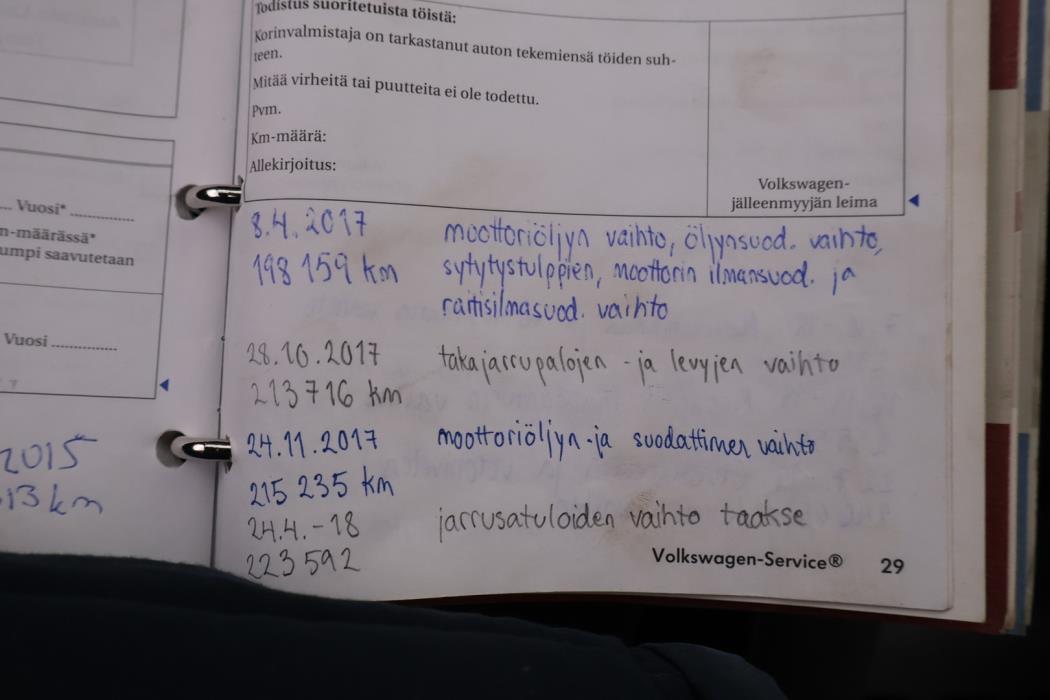 ... Vuosi* ..............
n-määrässä*
umpi saavutetaan
Vuosi ..............
2015
13 km
Todistus suoritetuista töistä:
Korinvalmistaja on tarkastanut auton tekemiensä töiden suh-
teen.
Mitää virheitä tai puutteita ei ole todettu.
Pvm.
Km-määrä:
Allekirjoitus:
Volkswagen-
jälleenmyyjän leima
8.4.2017 moottoriöljyn vaihto, öljynsuod. vaihto,
198 159 km sytytystulppien, moottorin ilmansuod. ja
raitisilmasuod. vaihto
28.10.2017 takajarrupalojen - ja levyjen vaihto
213 716 km
24.11.2017 moottoriöljyn-ja suodattimen vaihto
215 235 km
24.4.-18 jarrusatuloiden vaihto taakse
223 592
Volkswagen-Service® 29